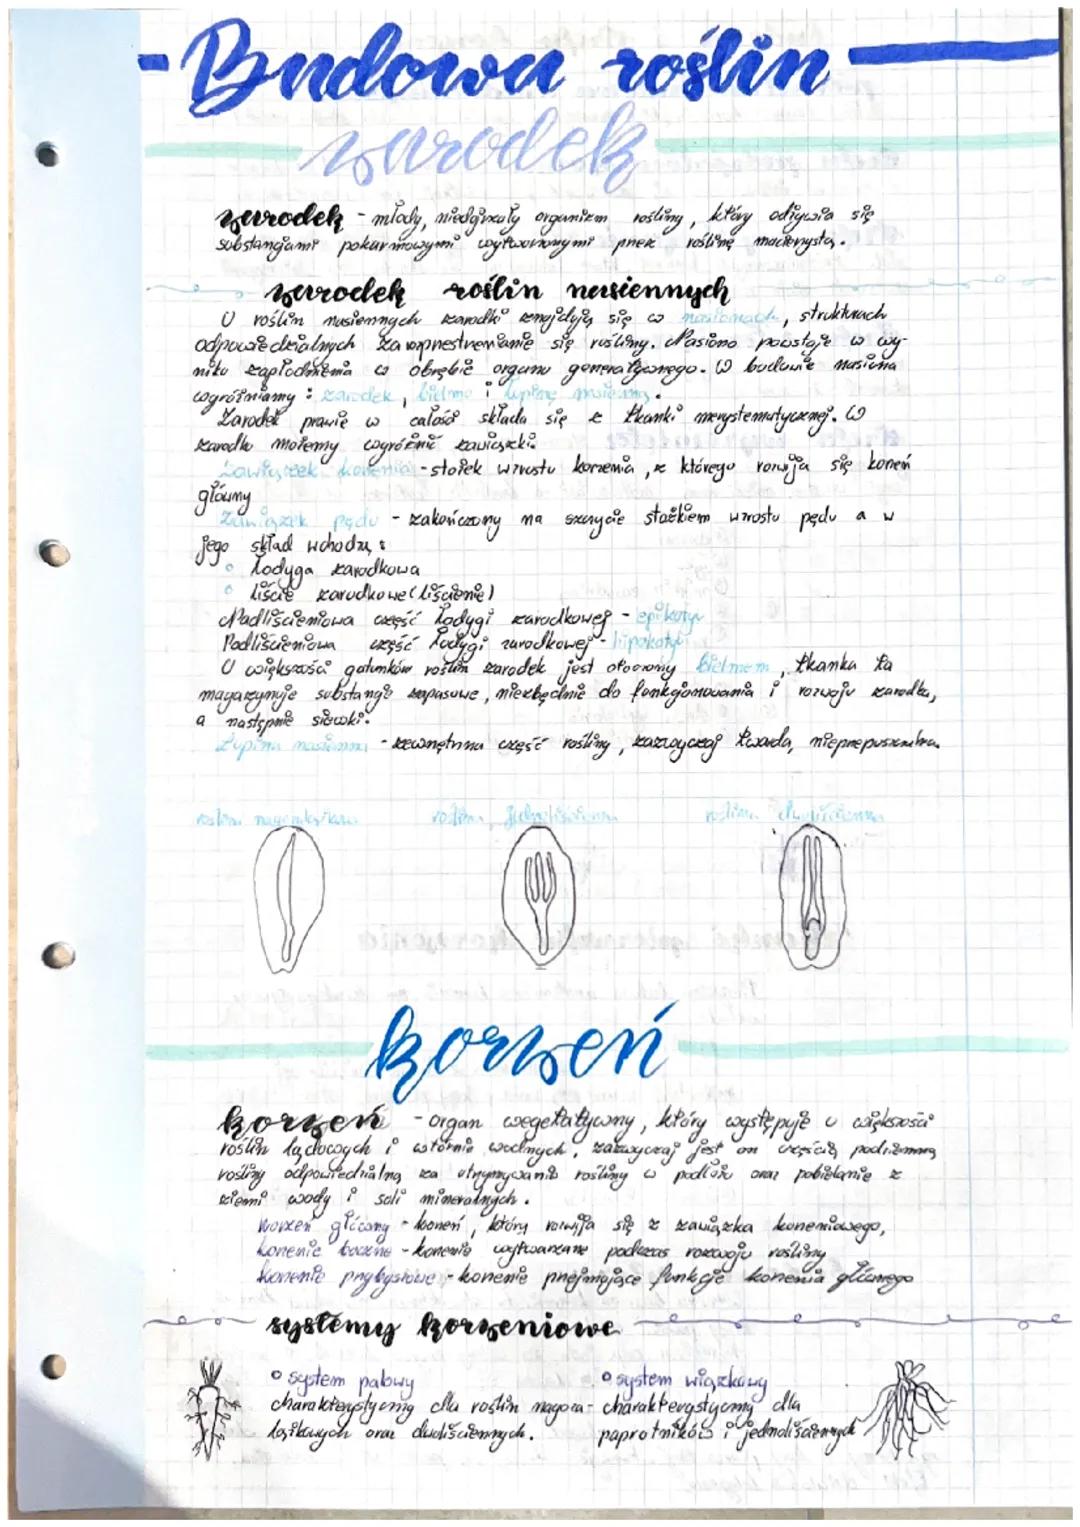 - Budowa roślin -
zarodek
zarodek - młody, niedojrzały organizm rośliny, który odżywia się
substancjami pokarmowymi wytworzonymi przez roślinę macierzystą.
zarodek roślin nasiennych
U roślin nasiennych zarodki znajdują się w nasionach, strukturach
odpowiedzialnych za rozprzestrzenianie się rośliny. Nasiono powstaje w wy-
niku zapłodnienia w obrębie organu generatywnego. W budowie nasiona
wyróżniamy: zarodek, bielmo i łupinę nasienną.
Zarodek prawie w całości składa się z tkanki merystematycznej. W
zarodku możemy wyróżnić zawiązki.
Zawiązek korzenia - stożek wzrostu korzenia, z którego rozwija się korzeń
główny
Zawiązek pędu - zakończony na szczycie stożkiem wzrostu pędu a w
jego skład wchodzą:
° łodyga zarodkowa
° liście zarodkowe (liścienie)
Nadliścieniowa część łodygi zarodkowej - epikotyl
Podliścieniowa część łodygi zarodkowej - hipokotyl
U większości gatunków roślin zarodek jest otoczony bielmem, tkanka ta
magazynuje substancje zapasowe, niezbędnie do funkcjonowania i rozwoju zarodka,
a następnie siewki.
Łupina nasienna - zewnętrzna część rośliny, zazwyczaj twarda, nieprzepuszczalna.
roślina nagozalążkowa roślina jednoliścienna roślina dwuliścienna
korzeń
korzeń - organ wegetatywny, który występuje u większości
roślin lądowych i wtórnie wodnych, zazwyczaj jest on częścią podziemną
rośliny odpowiedzialną za utrzymywanie rośliny w podłożu oraz pobieranie z
ziemi wody i soli mineralnych.
korzeń główny - korzeń, który rozwija się z zawiązka korzeniowego,
korzenie boczne - korzenie wytwarzane podczas rozwoju rośliny
korzenie przybyszowe - korzenie przejmujące funkcje korzenia głównego
systemy korzeniowe
° system palowy
charakterystyczny dla roślin nagoza-
lążkowych oraz dwuliściennych.
° system wiązkowy
charakterystyczny dla
paprotników i jednoliściennych